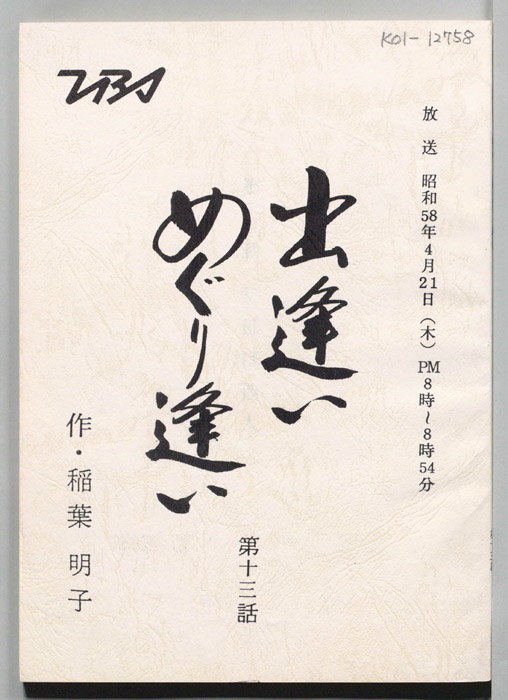 K01-12758
TBS
放送 昭和58年4月21日(木) PM8時~8時54分
出逢い
めぐり逢い
第十三話
作・稲葉 明子